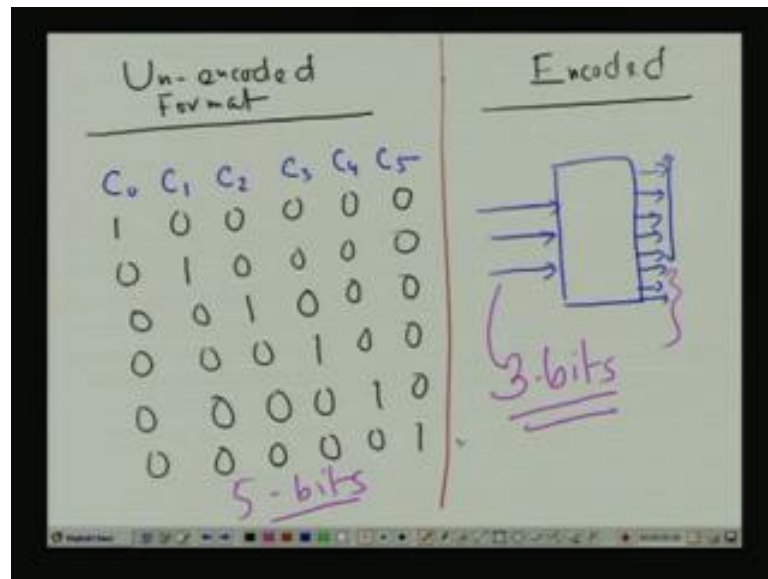 Un-encoded
Format
C₀ C₁ C₂ C₃ C₄ C₅
1 0 0 0 0 0
0 1 0 0 0 0
0 0 1 0 0 0
0 0 0 1 0 0
0 0 0 0 1 0
0 0 0 0 0 1
5-bits
Encoded
3-bits